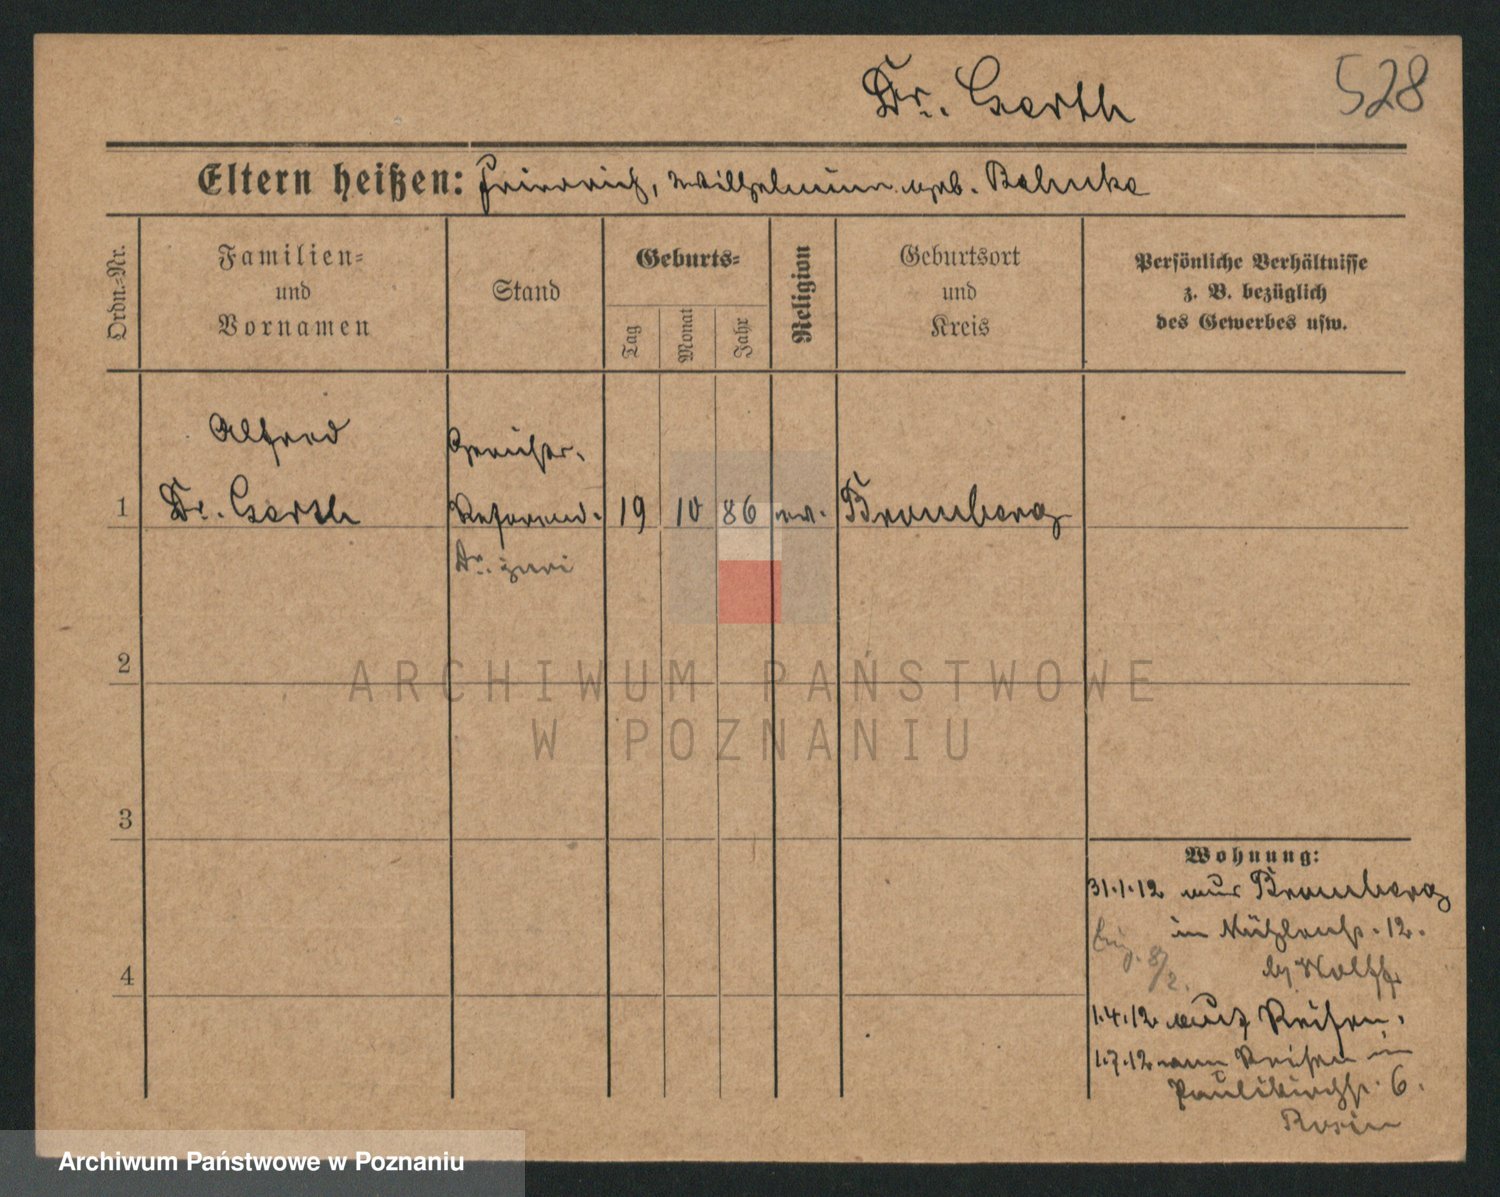 Dr. Gerth
528
Eltern heißen: Friedrich, Wilhelmine geb. Behnke
Ordn.-Nr.
Familien-
und
Vornamen
Stand
Geburts-
Tag
Monat
Jahr
Religion
Geburtsort
und
Kreis
Persönliche Verhältnisse
z. B. bezüglich
des Gewerbes usw.
Alfred
Gerichts-
1 Dr. Gerth Referend. 19 10 86 ev. Bromberg
Dr. juri
2
3
4
Wohnung:
31.1.12 aus Bromberg
in Mühlenstr. 12.
bei Wolff
8/2.
1.4.12 auf Reisen.
1.7.12 von Reisen in
Paulikirchstr. 6.
ARCHIWUM PAŃSTWOWE
W POZNANIU
Archiwum Państwowe w Poznaniu